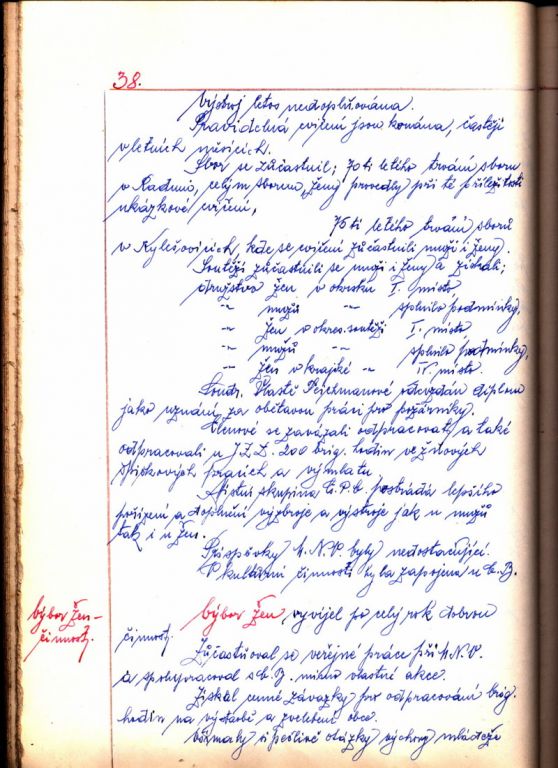 38.
Výstroj letos nedoplňována.
Pravidelná cvičení jsou konána, častěji
v letních měsících.
Sbor se zúčastnil; 70ti letého trvání sboru
v Kadunci, celým sborem, ženy provedly při té příležitosti
ukázkové cvičení,
75ti letého trvání sborů
v Kylešovicích, kde se cvičení zúčastnili muži i ženy.
Soutěží zúčastnili se muži i ženy a získali;
družstvo žen v okrsku I. místo
-"- mužů -"- splnilo podmínky,
-"- žen v okres. soutěži I. místo
-"- mužů -"- splnilo podmínky,
-"- žen v krajské -"- IV. místo.
Soudr. Vlastě Rychmanové odevzdán diplom
jako uznání za obětavou práci pro požárníky.
Členové se zavázali odpracovat, a také
odpracovali u J.Z.D. 200 brig. hodin ve žňových
špičkových pracích a výmlatu.
Místní skupina Č.P.O. postrádá lepšího
pořízení a doplnění výzbroje a výstroje jak u mužů
tak i u žen.
Příspěvky M.N.V. byly nedostačující.
V kulturní činnosti byla zapojena u O.B.
Výbor žen –
činnost.
Výbor žen vyvíjel po celý rok dobrou
činnost.
Zúčastňoval se veřejné práce při M.N.V.
a spolupracoval s O.B. mimo vlastní akce.
Získal cenné závazky pro odpracování brig.
hodin na výstavbě a zvelebení obce.
Všímaly si pečlivě otázky výchovy mládeže